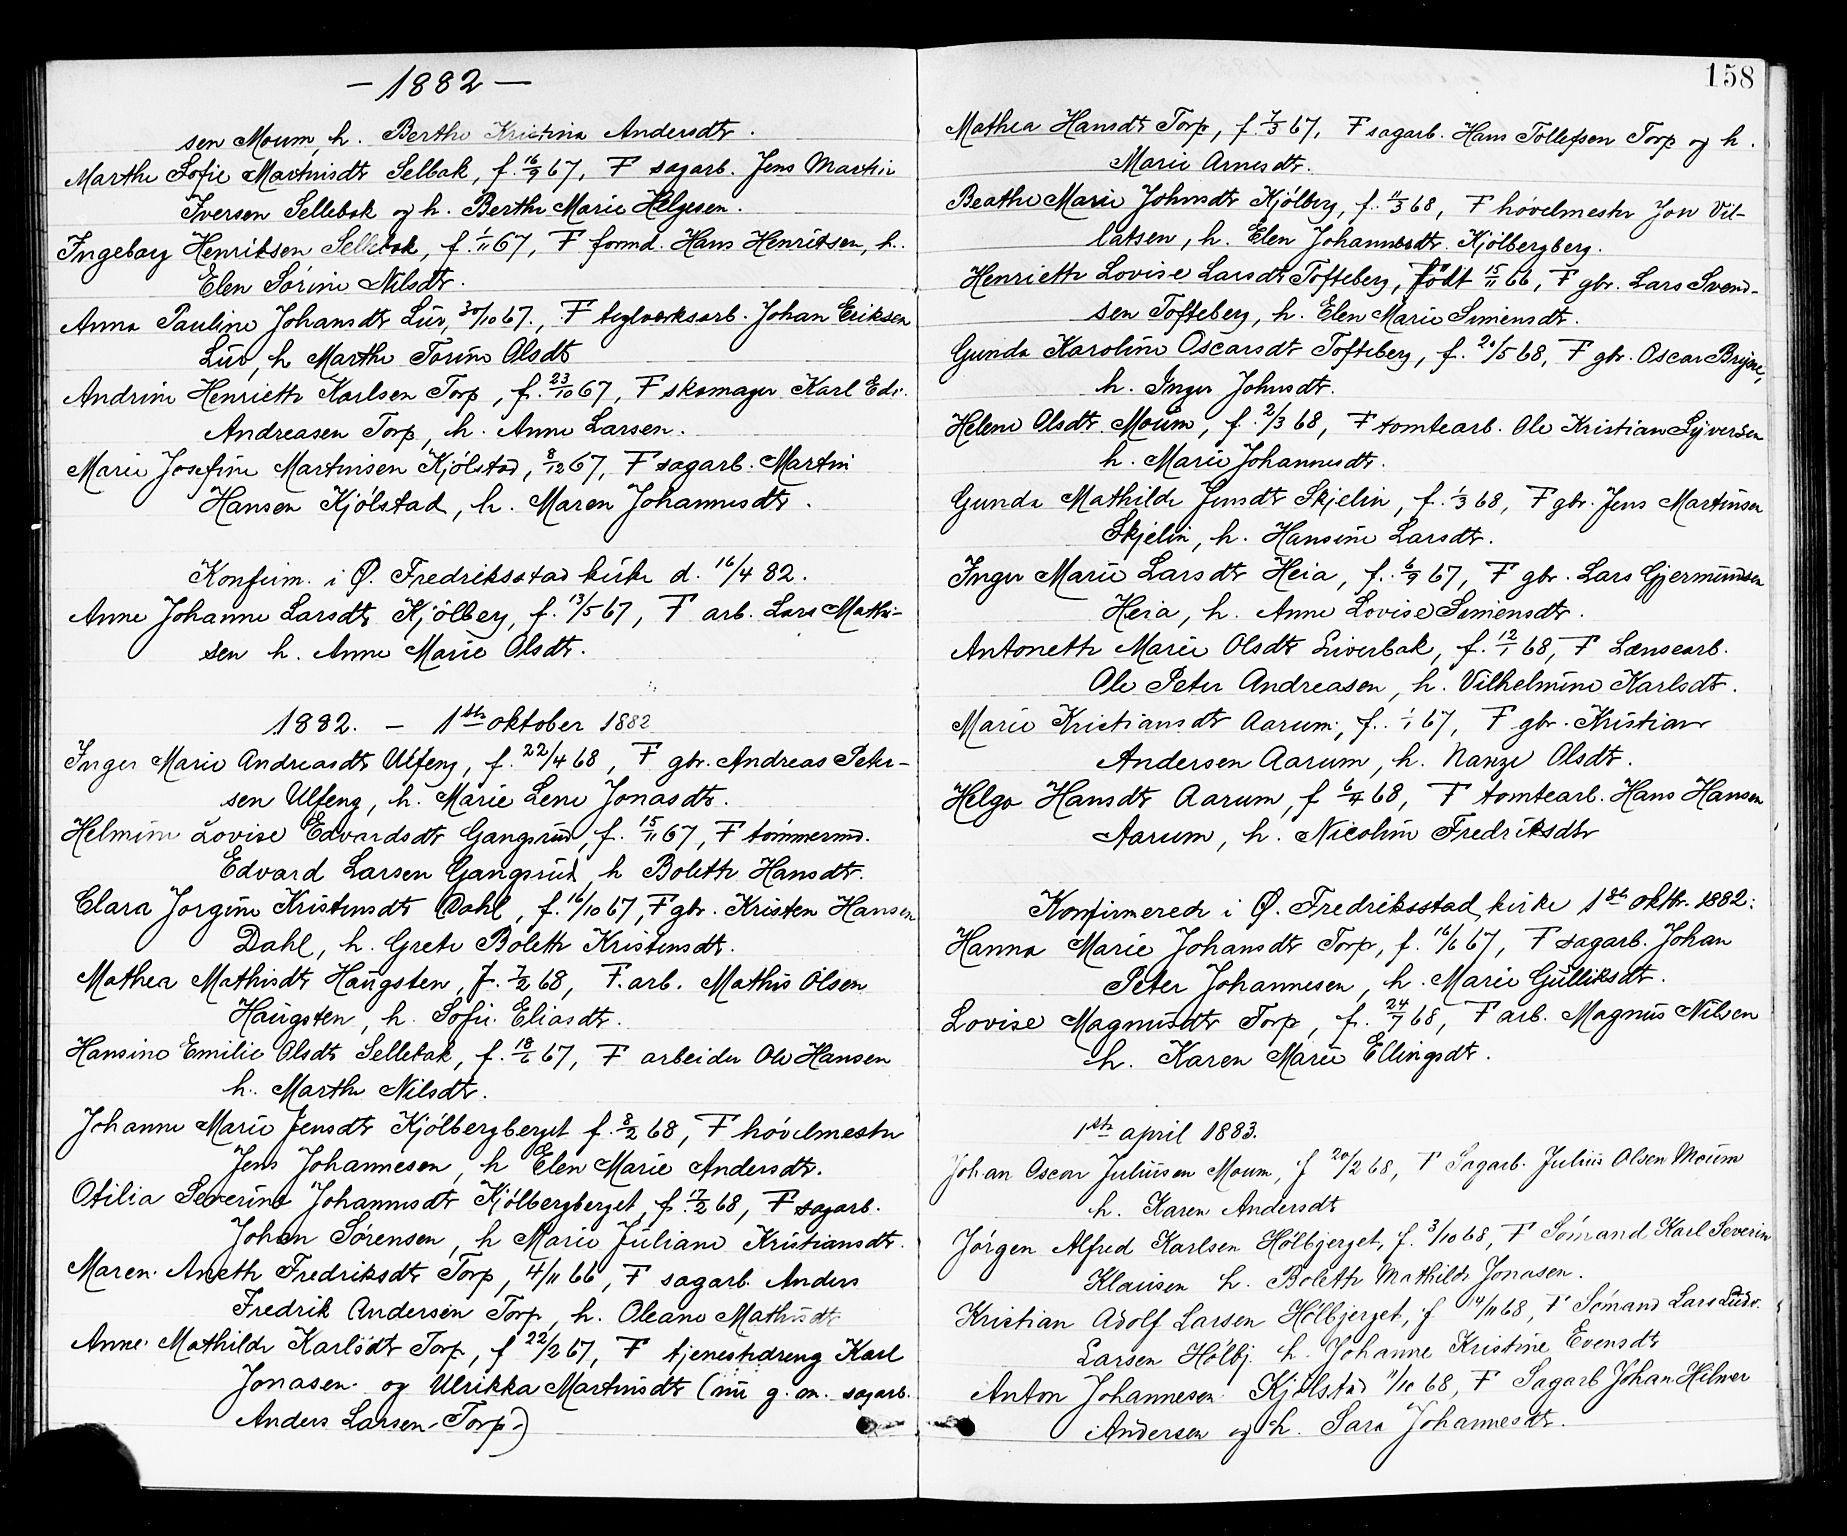 - 1882 -
sen Moum, h. Berthe Kristina Andersdtr.
Marthe Sofie Martinsdtr Selbak, f. 16/9 67, F sagarb. Jens Martin
Iversen Sellebak og h. Berthe Marie Helgesen.
Ingeborg Henriksen Sellebak, f. 1/11 67, F formd. Hans Henriksen, h.
Elen Sørine Nilsdtr.
Anna Pauline Johansdtr Lür, 30/10 67., F teglverksarb. Johan Eriksen
Lür, h Marthe Torine Olsdtr
Andrine Henriette Karlsen Torp, f. 23/10 67, F skomager Karl Edv.
Andreasen Torp, h. Anne Larsen.
Marie Josefine Martinsen Kjølstad, 8/12 67, F sagarb. Martin
Hansen Kjølstad, h. Maren Johannesdtr.
Konfirm. i Ø. Fredriksstad kirke d. 16/4 82.
Anne Johanne Larsdtr Kjølberg, f. 13/5 67, F arb. Lars Mathi-
sen h. Anne Marie Olsdtr.
1882. - 1ste oktober 1882
Inger Marie Andreasdtr Ulfeng, f. 22/4 68, F gbr. Andreas Peter-
sen Ulfeng, h. Marie Lene Jonasdtr.
Helmine Lovise Edvardsdtr Gangsrüd, f. 15/11 67, F tømmermd.
Edvard Larsen Gangsrüd h Bolette Hansdtr.
Clara Jørgine Kristensdtr Dahl, f. 16/10 67, F gbr. Kristen Hansen
Dahl, h. Grete Bolette Kristensdtr.
Mathea Mathisdtr Haugsten, f. 7/2 68, F. arb. Mathis Olsen
Haugsten, h. Sofie Eliasdtr.
Hansine Emilie Olsdtr Sellebak, f. 18/6 67, F arbeider Ole Hansen
h. Marthe Nilsdtr.
Johanne Marie Jensdtr Kjølbergberget f. 8/2 68, F høvelmester
Jens Johannesen, h Elen Marie Andersdtr.
Otilia Severine Johannesdtr Kjølbergberget, f. 17/2 68, F sagarb.
Johan Sørensen, h Marie Juliane Kristiansdtr.
Maren Anethe Fredriksdtr Torp, 4/11 66, F sagarb. Anders
Fredrik Andersen Torp, h. Oleane Mathisdtr
Anne Mathilde Karlsdtr Torp, f 22/2 67, F tjenestedreng Karl
Jonasen og Ulrikka Martinsdtr (nu g. m. sagarb.
Anders Larsen Torp)
158
Mathea Hansdtr Torp, f. 7/3 67, F sagarb. Hans Tollefsen Torp og h.
Marie Arnesdtr.
Beathe Marie Johnsdtr Kjølberg, f. 11/3 68, F høvelmester Jon Vil-
latsen, h. Elen Johannesdtr. Kjølbergberg.
Henriette Lovise Larsdtr Tofteberg, født 15/11 66, F gbr. Lars Svend-
sen Tofteberg, h. Elen Marie Simensdtr.
Gunda Karoline Oscarsdtr Tofteberg, f. 20/5 68, F gbr. Oscar Bryne,
h. Inger Johnsdtr.
Helene Olsdtr. Moüm, f. 2/3 68, F tomtearb. Ole Kristian Syversen
h. Marie Johannesdtr.
Gunda Mathilde Jensdtr Skjelin, f. 1/3 68, F gbr. Jens Martinsen
Skjelin, h. Hansine Larsdtr.
Inger Marie Larsdtr Heia, f. 6/9 67, F gbr. Lars Gjermundsen
Heia, h. Anne Lovise Simensdtr.
Antonette Marie Olsdtr Liverbak, f. 12/1 68, F Lænsearb.
Ole Peter Andreasen, h. Vilhelmine Karlsdtr.
Marie Kristiansdtr Aarum, f. 1/1 67, F gbr. Kristian
Andersen Aarum, h. Nanze Olsdtr.
Helga Hansdtr Aarum, f 6/4 68, F tomtearb. Hans Hansen
Aarum, h. Nicoline Fredriksdtr
Konfirmerede i Ø. Fredriksstad kirke 1ste oktbr. 1882:
Hanna Marie Johansdtr Torp, f. 16/6 67, F sagarb. Johan
Peter Johannesen, h. Marie Gulliksdtr.
Lovise Magnusdtr Torp, f. 24/7 68, F arb. Magnus Nilsen
h. Karen Marie Ellingsdtr.
1ste april 1883.
Johan Oscar Juliusen Moum, f 20/2 68, F Sagarb. Julius Olsen Moum
h. Karen Andersdtr
Jørgen Alfred Karlsen Hølbjerget, f. 3/10 68, F Sømand Karl Severin
Klausen h. Bolette Mathilde Jonasen.
Kristian Adolf Larsen Hølbjerget, f 14/11 68, F Sømand Lars Ludv.
Larsen Hølbj. h. Johanne Kristine Evensdtr
Anton Johannesen Kjølstad 11/10 68, F Sagarb Johan Hilmer
Andersen og h. Sara Johannesdtr.